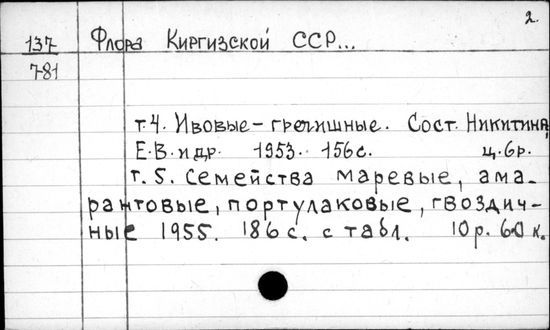 2.
137
781
Флора Киргизской ССР...
т.4. Ивовые-гречишные. Сост. Никитина
Е.В. и др. 1953. 156с. ц.6р.
т.5. Семейства маревые, ама-
рантовые, портулаковые, гвоздич-
ные 1955. 186 с. с табл. 10р. 60 к.